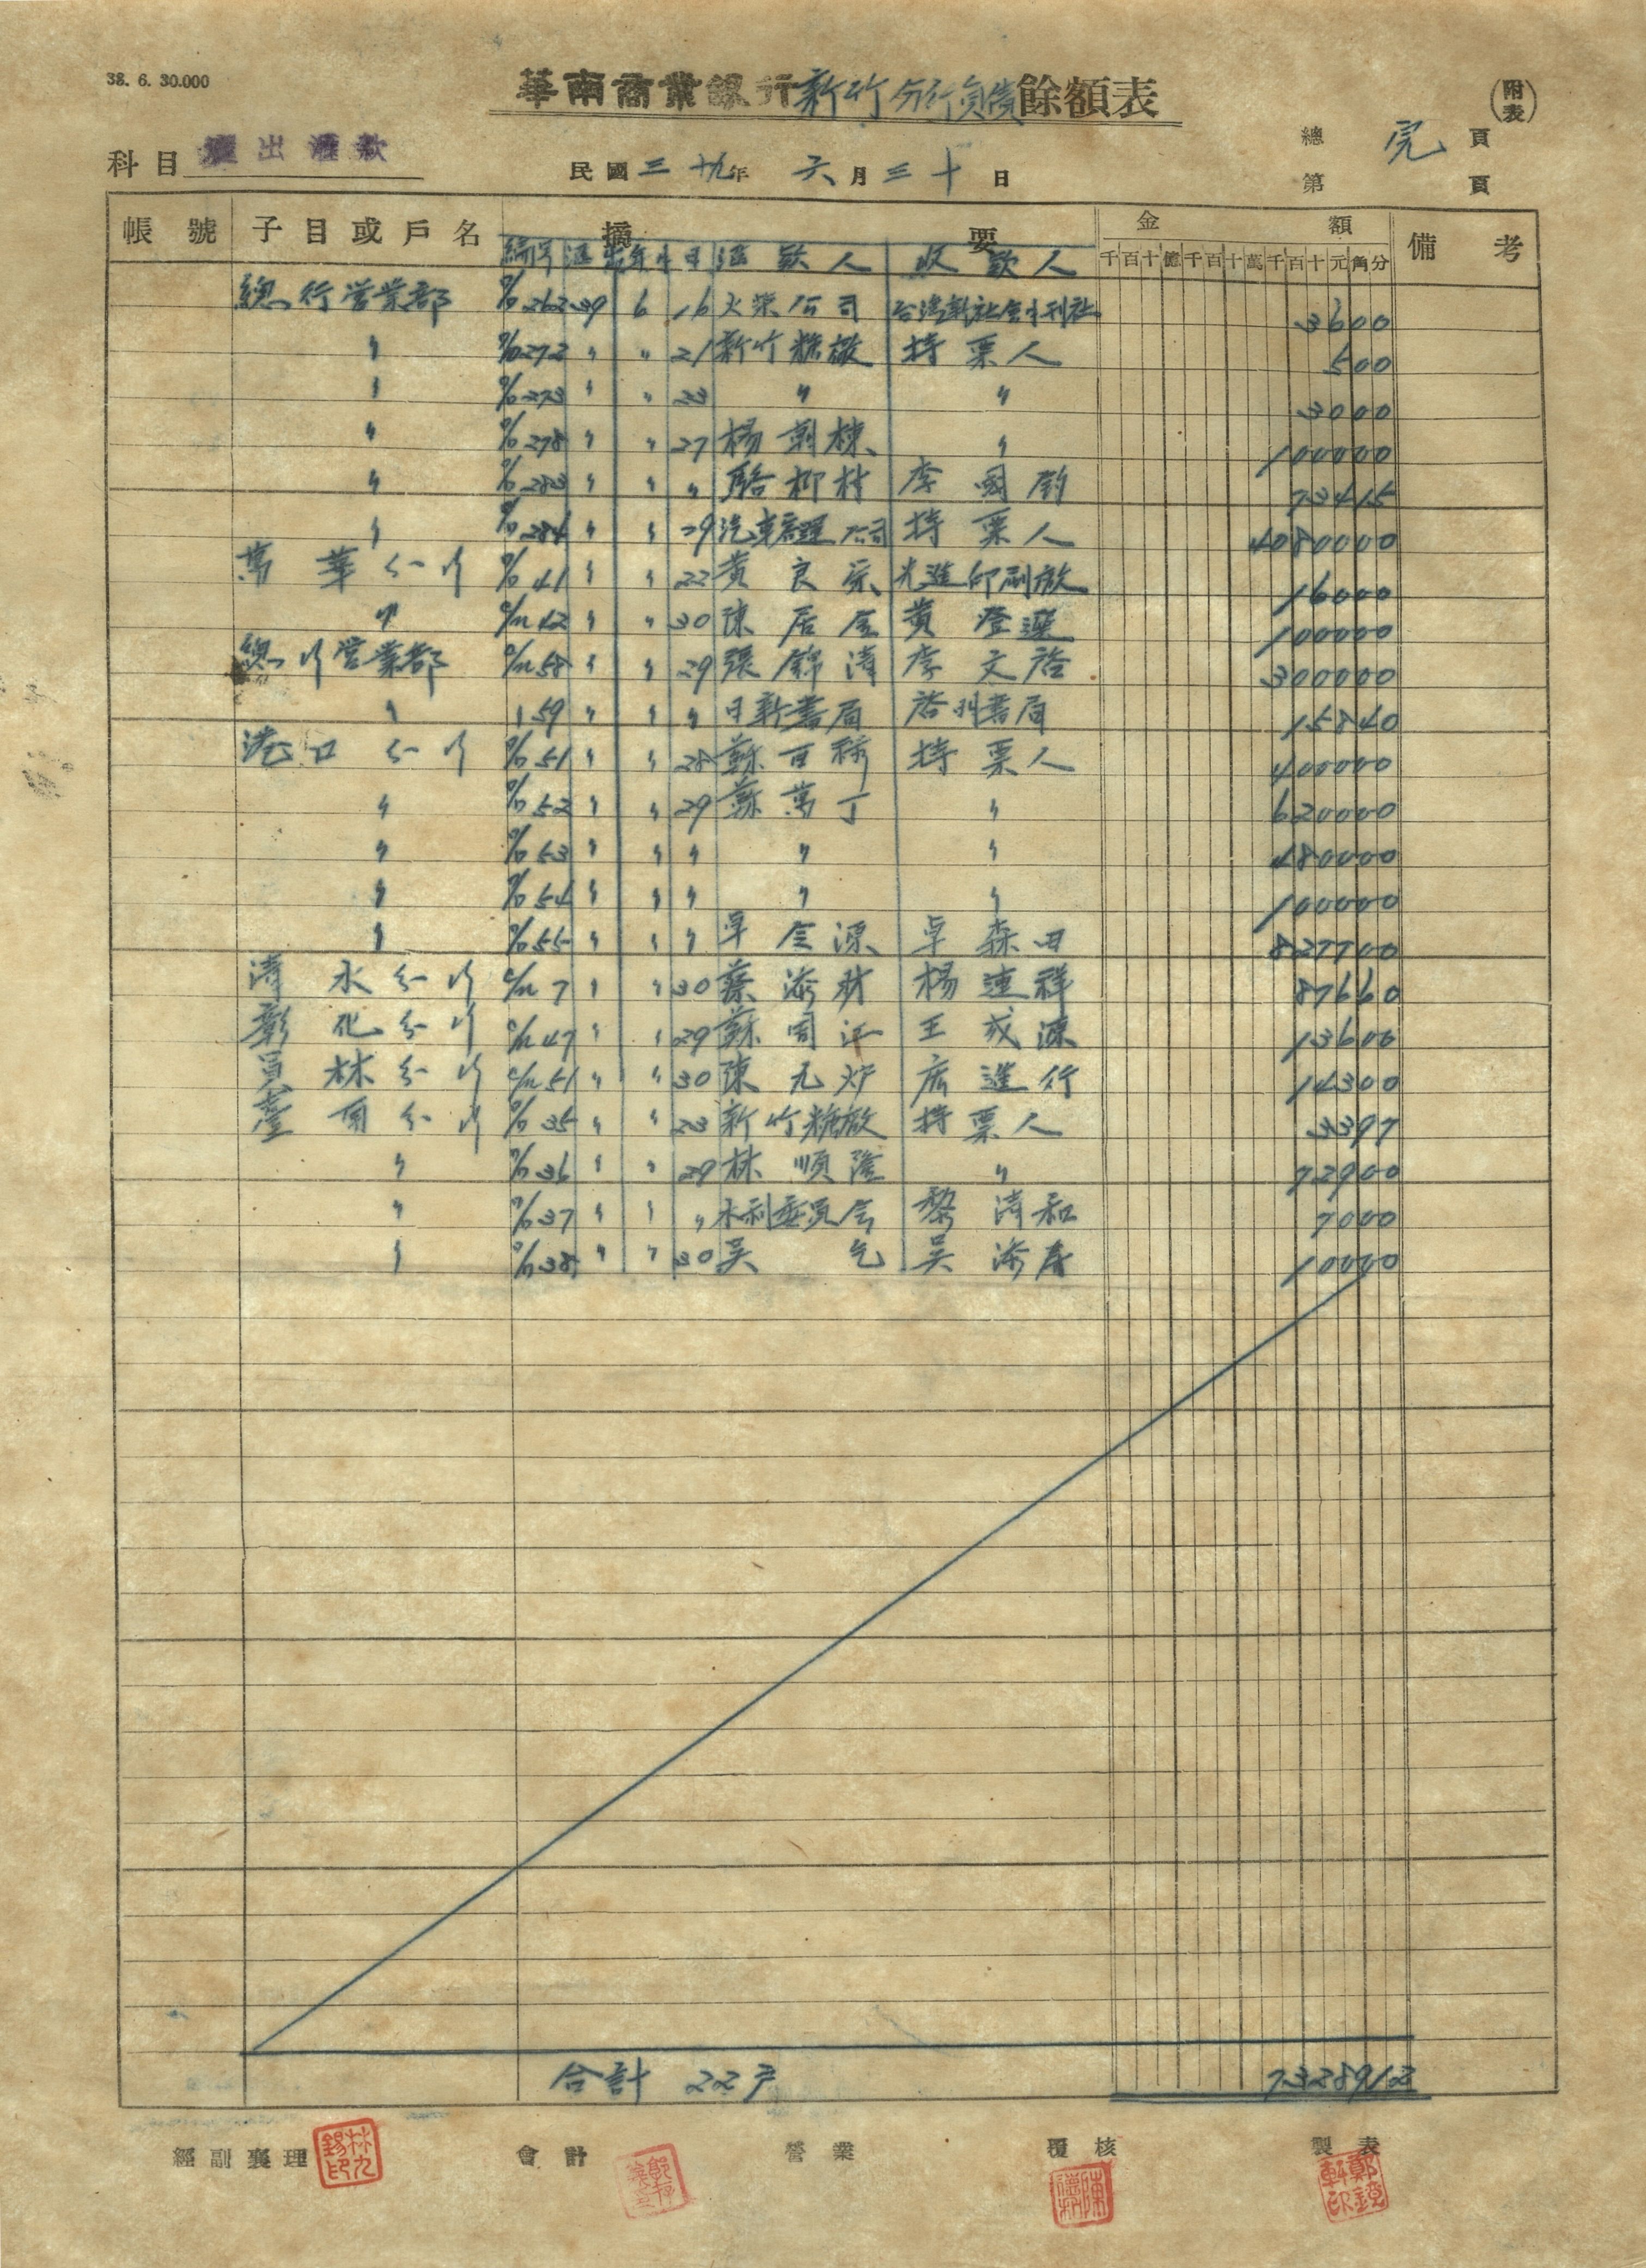 38. 6. 30.000
華南商業銀行新竹分行負債餘額表
(附表)
科目 匯出匯款
民國三十九年 六月三十日
總 完 頁
第 頁
帳號 子目或戶名 摘要 金額 備考
編号 匯出年月日 滙款人 收款人 千百十億千百十萬千百十元角分
總行営業部 262 39 6 16 火柴公司 3600
〃 272 〃 〃 21 新竹糖廠 持票人 500
〃 273 〃 〃 23 〃 〃 3000
〃 278 〃 〃 27 楊 棟 〃 100000
〃 283 〃 〃 〃 駱柳村 李國鈞 73415
〃 284 〃 〃 29 汽車 公司 持票人 4080000
萬華分行 41 〃 〃 22 黄良 光進印刷廠 16000
〃 42 〃 〃 30 陳居金 黄登選 100000
總行営業部 58 〃 〃 29 張錦清 李文啓 300000
〃 59 〃 〃 〃 日新書局 啓明書局 15840
港口分行 51 〃 〃 28 蘇百 持票人 400000
〃 52 〃 〃 29 蘇萬丁 〃 620000
〃 53 〃 〃 〃 〃 〃 480000
〃 54 〃 〃 〃 〃 〃 100000
〃 55 〃 〃 〃 卓金源 卓森田 827700
清水分行 7 〃 〃 30 蔡添財 楊連祥 87660
彰化分行 47 〃 〃 29 蘇周江 王成源 13600
員林分行 51 〃 〃 30 陳九炉 進行 14300
臺南分行 35 〃 〃 23 新竹糖廠 持票人 3397
〃 36 〃 〃 29 林順隆 〃 72900
〃 37 〃 〃 〃 水利委員会 黎清和 7000
〃 38 〃 〃 30 吴乞 吴添春 10000
合計 22戶 7328912
經副襄理 會計 營業 覆核 製表
林九錫印